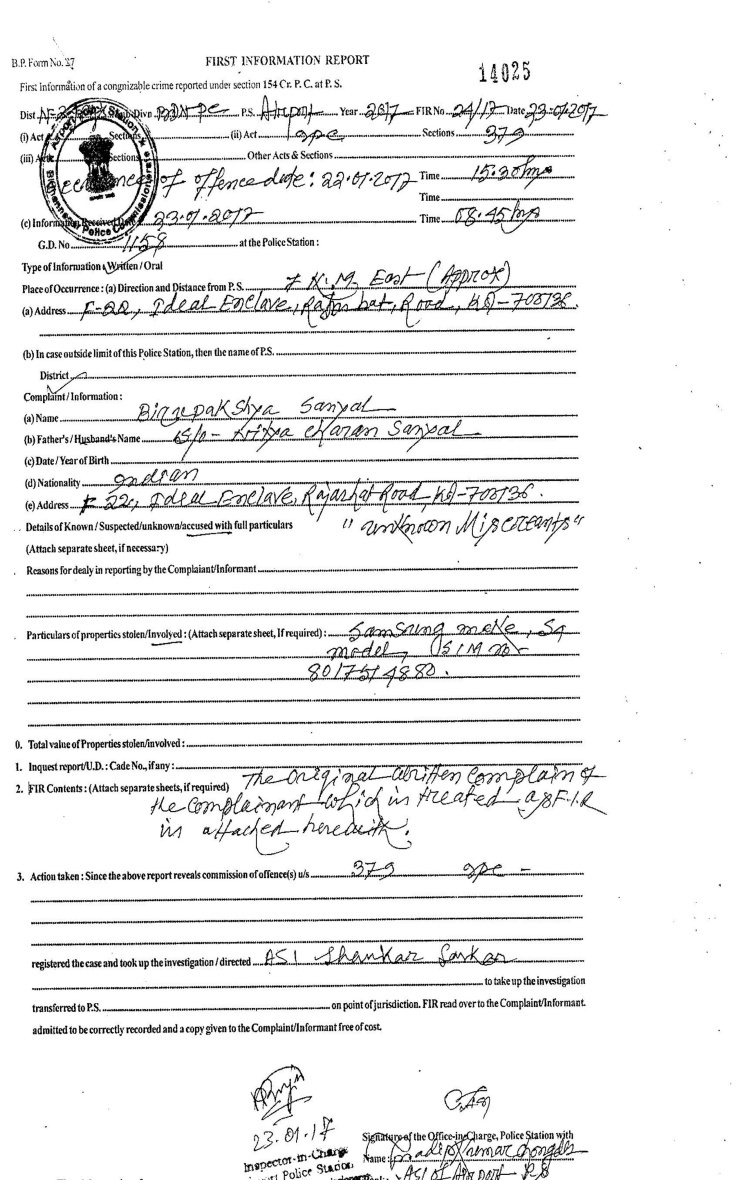 B.P. Form No. 27
FIRST INFORMATION REPORT
14025
First information of a congnizable crime reported under section 154 Cr. P. C. at P. S.
Dist Divn P.S. Airport Year 2017 FIR No. 24/17 Date 23-01-2017
(i) Act Sections (ii) Act IPC Sections 379
(iii) Act Sections Other Acts & Sections
of offence date: 22.01.2017 Time 15.30 hrs
Time
(c) Information Received Date 23.01.2017 Time 08.45 hrs
G.D. No 1158 at the Police Station :
Type of Information : Written / Oral
Place of Occurrence : (a) Direction and Distance from P. S. 7 K.M. East (Approx)
(a) Address F-22, Ideal Enclave, Rajarhat, Road, Kol-700136.
(b) In case outside limit of this Police Station, then the name of P.S.
District
Complaint / Information :
(a) Name Birupakshya Sanyal
(b) Father's / Husband's Name S/o - Nitya Charan Sanyal
(c) Date / Year of Birth
(d) Nationality Indian
(e) Address F 22, Ideal Enclave, Rajarhat Road, Kol-700136.
Details of Known / Suspected/unknown/accused with full particulars "unknown Miscreants"
(Attach separate sheet, if necessary)
Reasons for dealy in reporting by the Complaiant/Informant
Particulars of properties stolen/Involyed : (Attach separate sheet, If required) : Samsung make,
model, SIM no-
8017514880.
0. Total value of Properties stolen/involved :
1. Inquest report/U.D. : Cade No., if any :
2. FIR Contents : (Attach separate sheets, if required) The Original written Complain of
the Complainant which is treated as F.I.R
is attached herewith.
3. Action taken : Since the above report reveals commission of offence(s) u/s 379 IPC -
registered the case and took up the investigation / directed ASI Shankar Sarkar
to take up the investigation
transferred to P.S. on point of jurisdiction. FIR read over to the Complaint/Informant.
admitted to be correctly recorded and a copy given to the Complaint/Informant free of cost.
23.01.17
Signature of the Office-in-Charge, Police Station with
Inspector-in-Charge
Name : Pradip Kumar
Police Station
ASI of Airport P.S